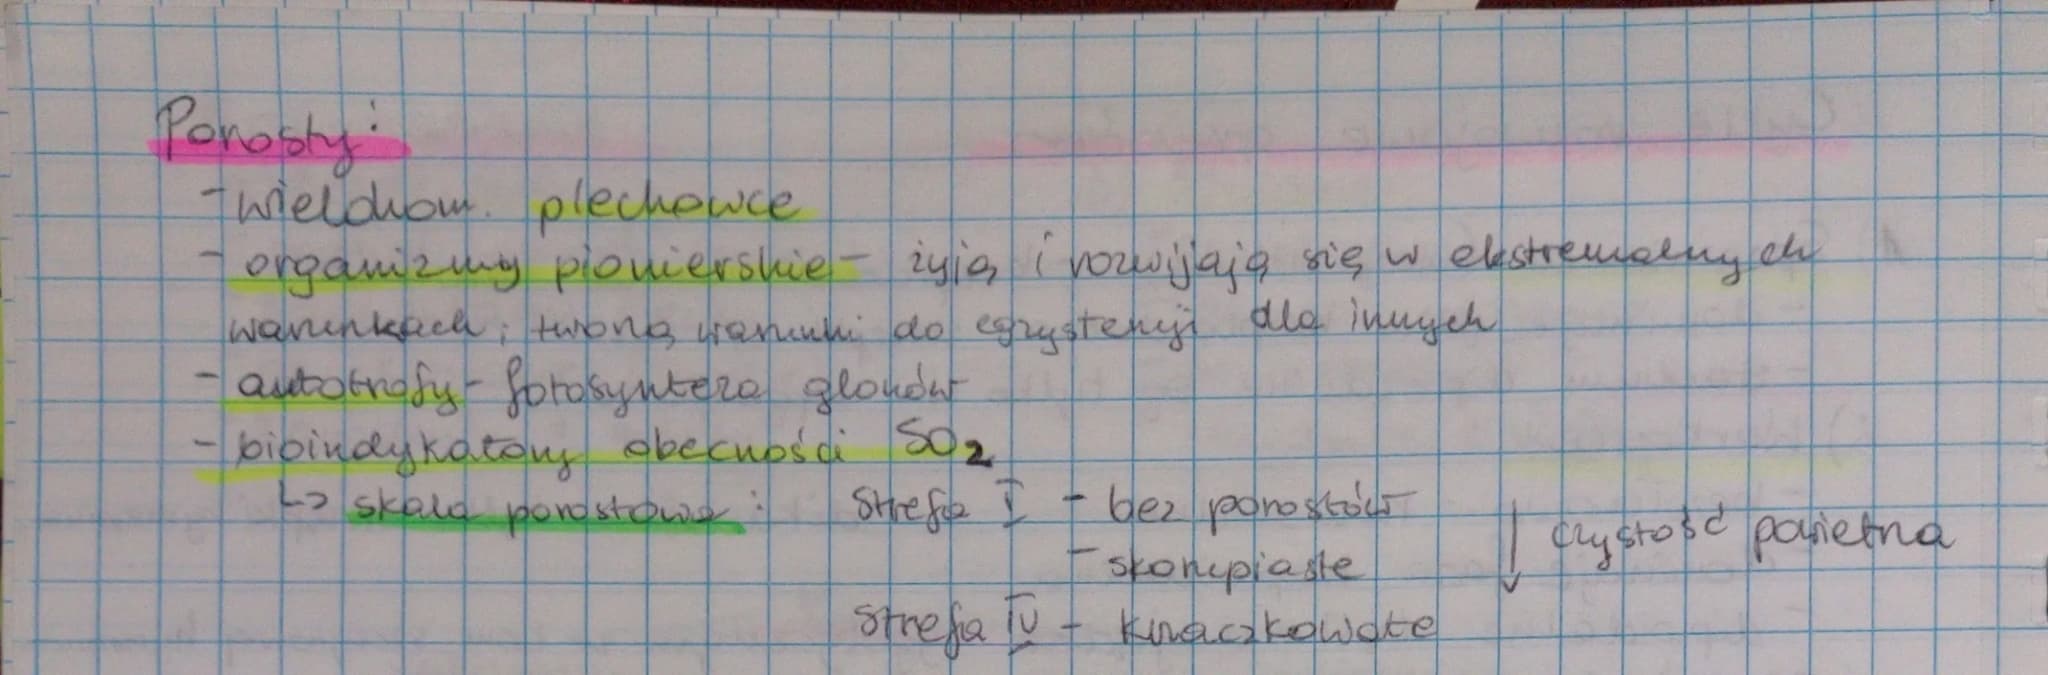 Porosty:
- wielokom. plechowce
- organizmy pionierskie - żyją i rozwijają się w ekstremalnych
warunkach; tworzą warunki do egzystencji dla innych
- autotrofy - fotosynteza glonów
- bioindykatory obecności SO2
↳ skala porostowa: Strefa I - bez porostów
- skorupiaste ↓ czystość powietrza
Strefa IV - krzaczkowate